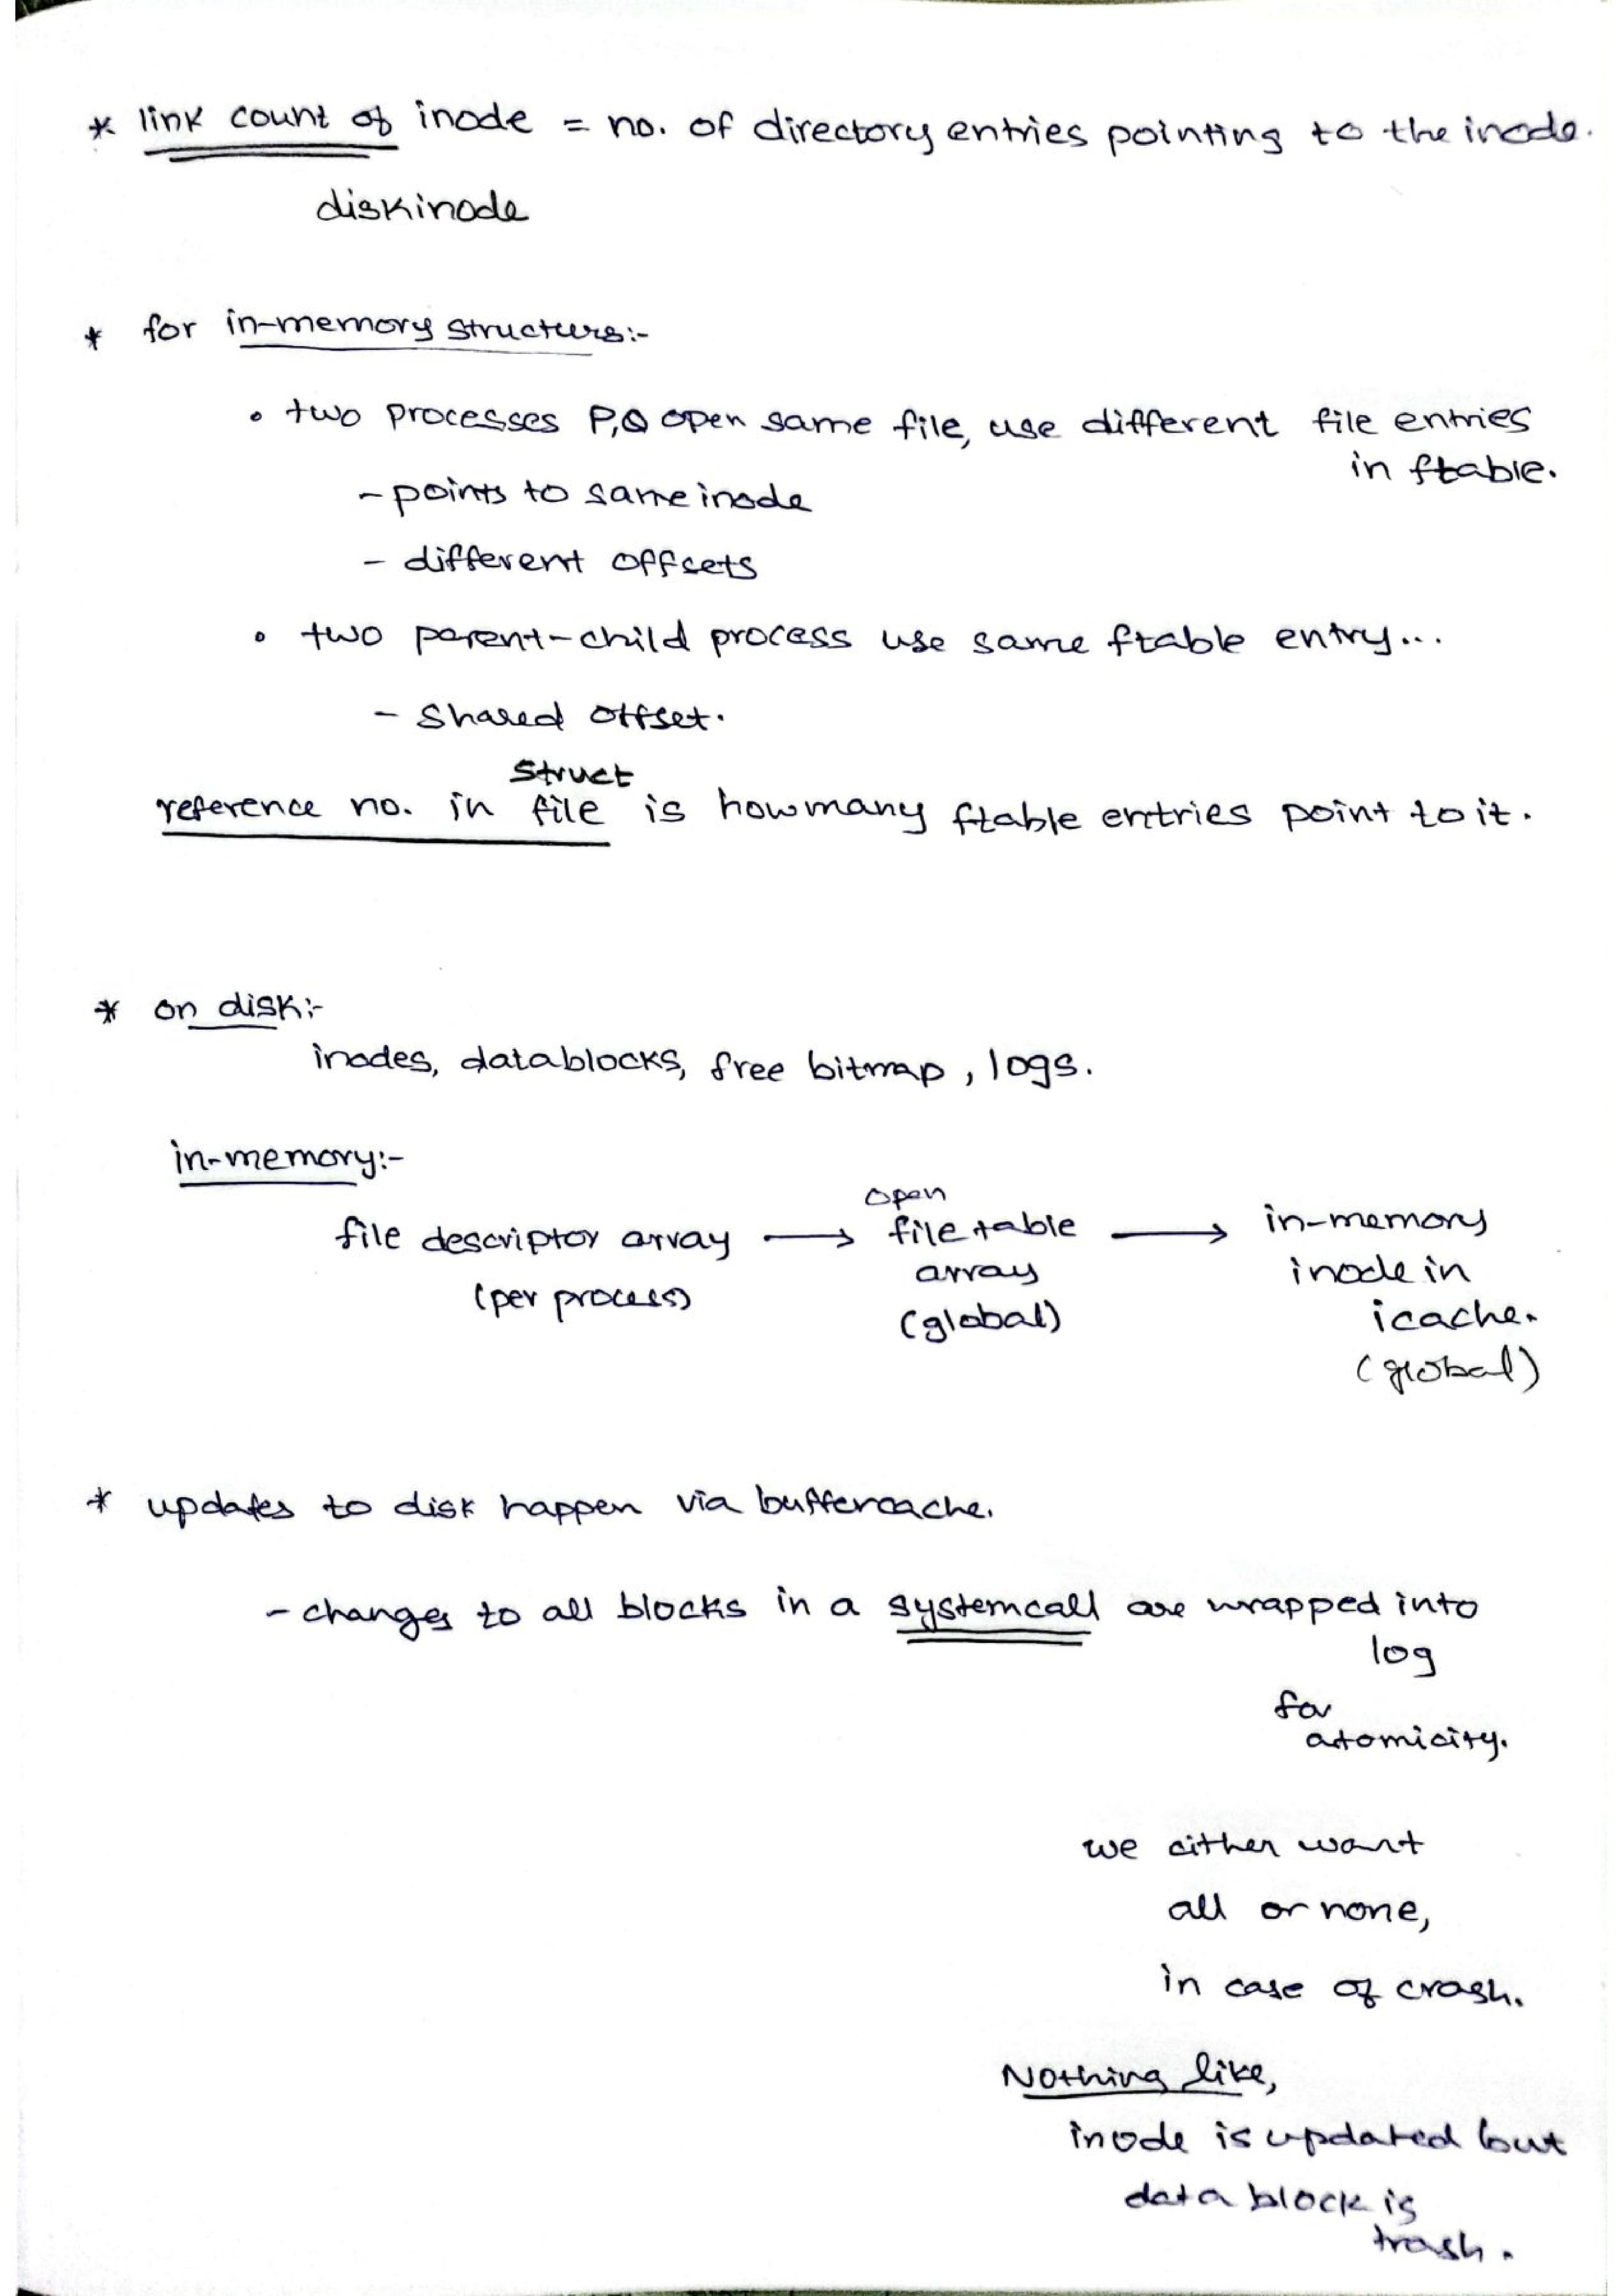 * link count of inode = no. of directory entries pointing to the inode.
diskinode
* for in-memory structures:-
• two processes P,Q open same file, use different file entries
in ftable.
- points to same inode
- different offsets
• two parent-child process use same ftable entry...
- shared offset.
struct
reference no. in file is how many ftable entries point to it.
* on disk:-
inodes, datablocks, free bitmap, logs.
in-memory:-
open
file descriptor array → file table → in-memory
array inode in
(per process) (global) icache.
(global)
* updates to disk happen via buffercache.
- changes to all blocks in a systemcall are wrapped into
log
for
atomicity.
we either want
all or none,
in case of crash.
Nothing like,
inode is updated but
data block is
trash.